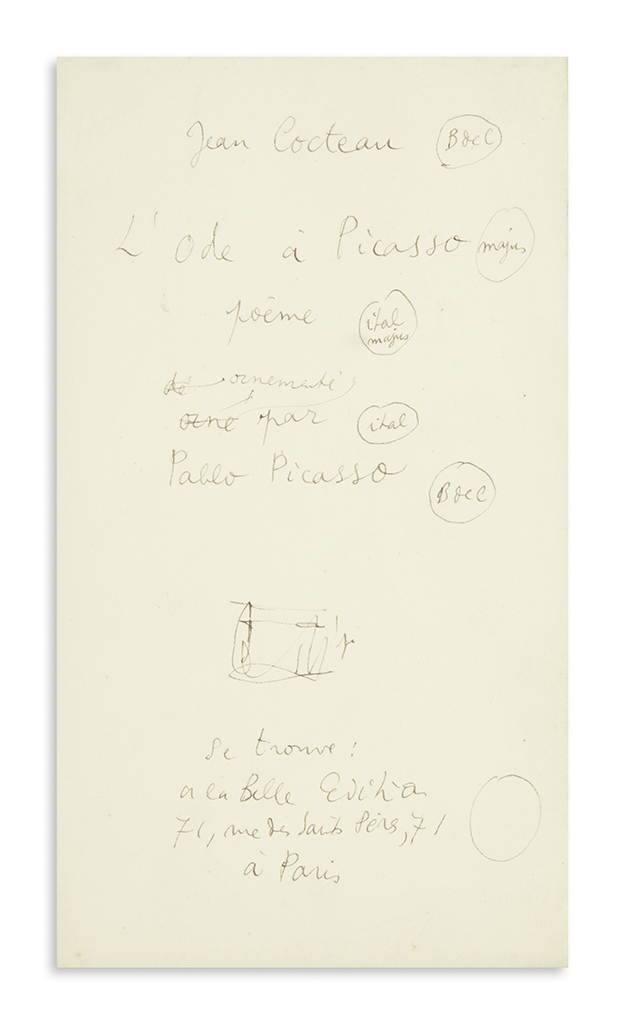 Jean Cocteau BdeC
L'Ode à Picasso majus
poème ital majus
de ornementé
orné par ital
Pablo Picasso BdeC
Se trouve :
a la Belle Edition
71, rue des Saints Pères, 71
à Paris